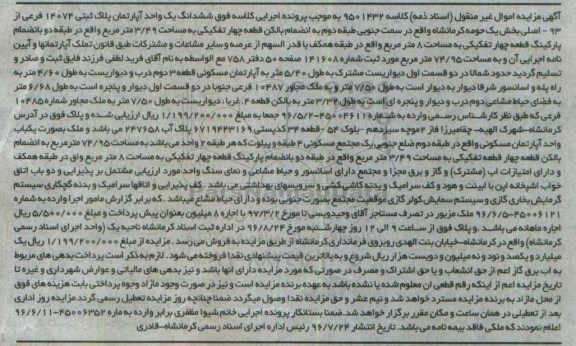 آگهی مزایده اموال غیر منقول (اسناد ذمه) کلاسه ۹۵۰۱۴۳۲ به موجب پرونده اجرایی کلاسه فوق ششدانگ یک واحد آپارتمان پلاک ثبتی ۱۴۰۷۴ فرعی از
۹۳ - اصلی بخش یک حومه کرمانشاه واقع در سمت جنوبی طبقه دوم به انضمام بالکن قطعه چهار تفکیکی به مساحت ۳/۴۹ متر مربع واقع در طبقه دو بانضمام
پارکینگ قطعه چهار تفکیکی به مساحت ۸ متر مربع واقع در طبقه همکف با قدر السهم از عرصه و سایر مشاعات و مشترکات طبق قانون تملک آپارتمانها و آیین
نامه اجرایی آن و به مساحت ۷۴/۹۵ متر مربع مورد ثبت شماره ۱۴۱۶۰۸ صفحه ۵۰ دفتر ۷۵۸ مع الواسطه به نام آقای فرید لطفی فرزند فایق ثبت و صادر و
تسلیم گردید حدود شمالا در دو قسمت اول دیواریست مشترک به طول ۵/۴۰ متر به آپارتمان مسکونی قطعه ۳ دوم درب و دیواریست به طول ۴/۶۰ متر به
راه پله و آسانسور شرقا دیوار به دیوار است به طول ۷/۵۰ متر و به ملک مجاور ۱۰۴۸۷ فرعی جنوبا در دو قسمت اول دیوار و پنجره است به طول ۶/۶۸ متر
به فضای حیاط مشاعی دوم درب و دیوار و پنجره ای است به طول ۳/۳۲ متر به بالکن قطعه ۴. غربا: دیواریست به طول ۷/۵۰ متر به ملک مجاور شماره ۱۰۴۸۵
فرعی که طبق نظر کارشناس رسمی وارده به شماره ۴۵۰۰۴۶۱۱-۹۶/۵/۲ جمعا به مبلغ ۱/۱۹۹/۲۰۰/۰۰۰ ریال ارزیابی شده و پلاک فوق در آدرس
کرمانشاه-شهرک الهیه- چقامیرزا فاز ۲ موجه سیزدهم -بلوک ۵۴ -قطعه ۳۴ کدپستی ۶۷۱۹۴۴۳۱۶۹ پلاک آب ۲۴۷۶۵۸ می باشد و ملک بصورت یکباب
واحد آپارتمان مسکونی واقع در طبقه دوم ضلع جنوبی یک مجتمع مسکونی ۴ طبقه و پیلوت که هر طبقه ۲ واحد می باشد به مساحت ۷۴/۹۵ متر مربع به انضمام
بالکن قطعه چهار تفکیکی به مساحت ۳/۴۹ متر مربع واقع در طبقه دو بانضمام پارکینگ قطعه چهار تفکیکی به مساحت ۸ متر مربع واقع در طبقه همکف
و دارای امتیازات آب (مشترک) و گاز و برق مجزا و مجتمع دارای آسانسور و حیاط مشاعی و نمای سنگ واحد مورد ارزیابی مشتمل بر پذیرایی و دو باب اتاق
خواب آشپزخانه اپن با ابینت و هود و کف سرامیک و بدنه کاشی کشی و سرویسهای بهداشتی می باشد. کف پذیرایی و اتاقها سرامیک و بدنه گچکاری سیستم
گرمایش بخاری گازی و سیستم سمایش کولر گازی موقعیت مجتمع بصورت جنوبی بوده و دارای حیاط مشاع میباشد . که برابر گزارش مامور اجرا وارده به شماره
۴۵۰۰۶۱۲۱-۹۶/۶/۵ ملک مزبور در تصرف مستاجر آقای وحیدویسی تا مورخ ۹۷/۳/۲ با اجاره ۸ میلیون بعنوان پیش پرداخت و مبلغ ۵/۵۰۰/۰۰۰ ریال
اجاره ماهانه می باشد. و پلاک فوق از ساعت ۹ الی ۱۲ روز چهارشنبه مورخ ۹۶/۸/۲۴ در اداره ثبت اسناد کرمانشاه ناحیه یک (واحد اجرای اسناد رسمی
کرمانشاه) واقع در کرمانشاه-خیابان بنت الهدی روبروی فرمانداری کرمانشاه از طریق مزایده به فروش می رسد . مزایده از مبلغ ۱/۱۹۹/۲۰۰/۰۰۰ ریال یک
میلیارد و یکصد و نود و نه میلیون و دویست هزار ریال شروع و به بالاترین قیمت پیشنهادی نقدا فروخته می شود . لازم به ذکر است پرداخت بدهی های مربوط
به اب برق گاز اعم از حق انشعاب و یا حق اشتراک و مصرف در صورتی که مورد مزایده دارای آنها باشد و نیز بدهی های مالیاتی و عوارض شهرداری و غیره تا
تاریخ مزایده اعم از اینکه رقم قطعی ان معلوم شده یا نشده باشد به عهده برنده مزایده است و نیز در صورت وجود مازاد وجوه پرداختی بابت هزینه های فوق
از محل مازاد به برنده مزایده مسترد خواهد شد و نیم عشر و حق مزایده نقدا وصول میگردد ضمنا چنانچه روز مزایده تعطیل رسمی گردد مزایده روز اداری
بعد از تعطیلی در همان ساعت و مکان مقرر برگزار خواهد شد.ضمنا بستانکار پرونده اجرایی خانم شیوا مظفری برابر وارده به ماره ۴۵۰۰۶۳۵۲-۹۶/۶/۱۱
اعلام نمودند که ملکی فاقد بیمه نامه می باشد. تاریخ انتشار ۹۶/۷/۲۴ رئیس اداره اجرای اسناد رسمی کرمانشاه-قادری